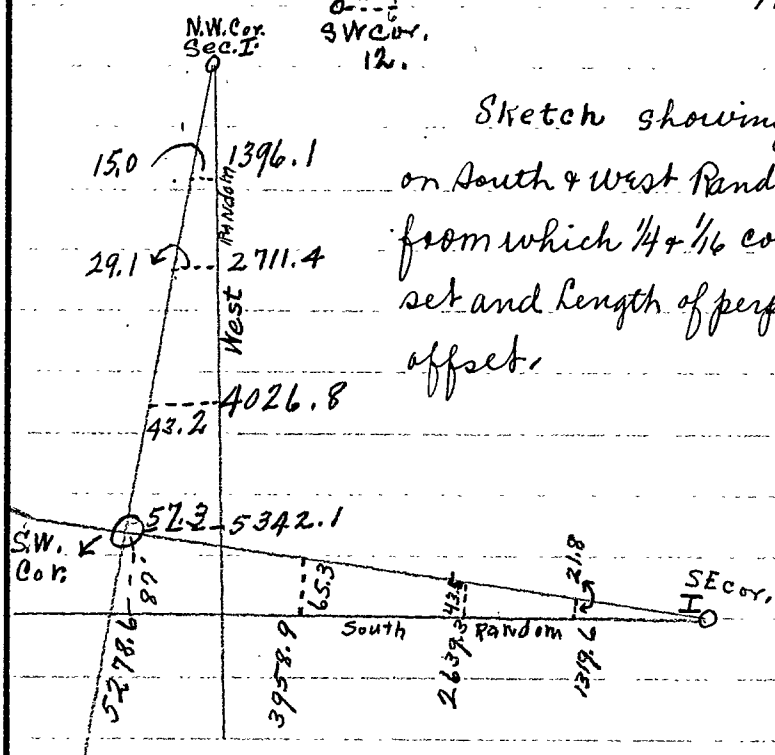 SWCor.
12.
N.W. Cor.
Sec. I.
Sketch showing
on South & West Rand
from which 1/4 & 1/16 co
set and Length of perp
offset.
15.0
1396.1
29.1
2711.4
West Random
43.2
4026.8
57.3
5342.1
S.W.
Cor.
87'
5278.6
65.3
3958.9
South Random
43.5
2639.3
21.8
1319.6
SE cor.
I